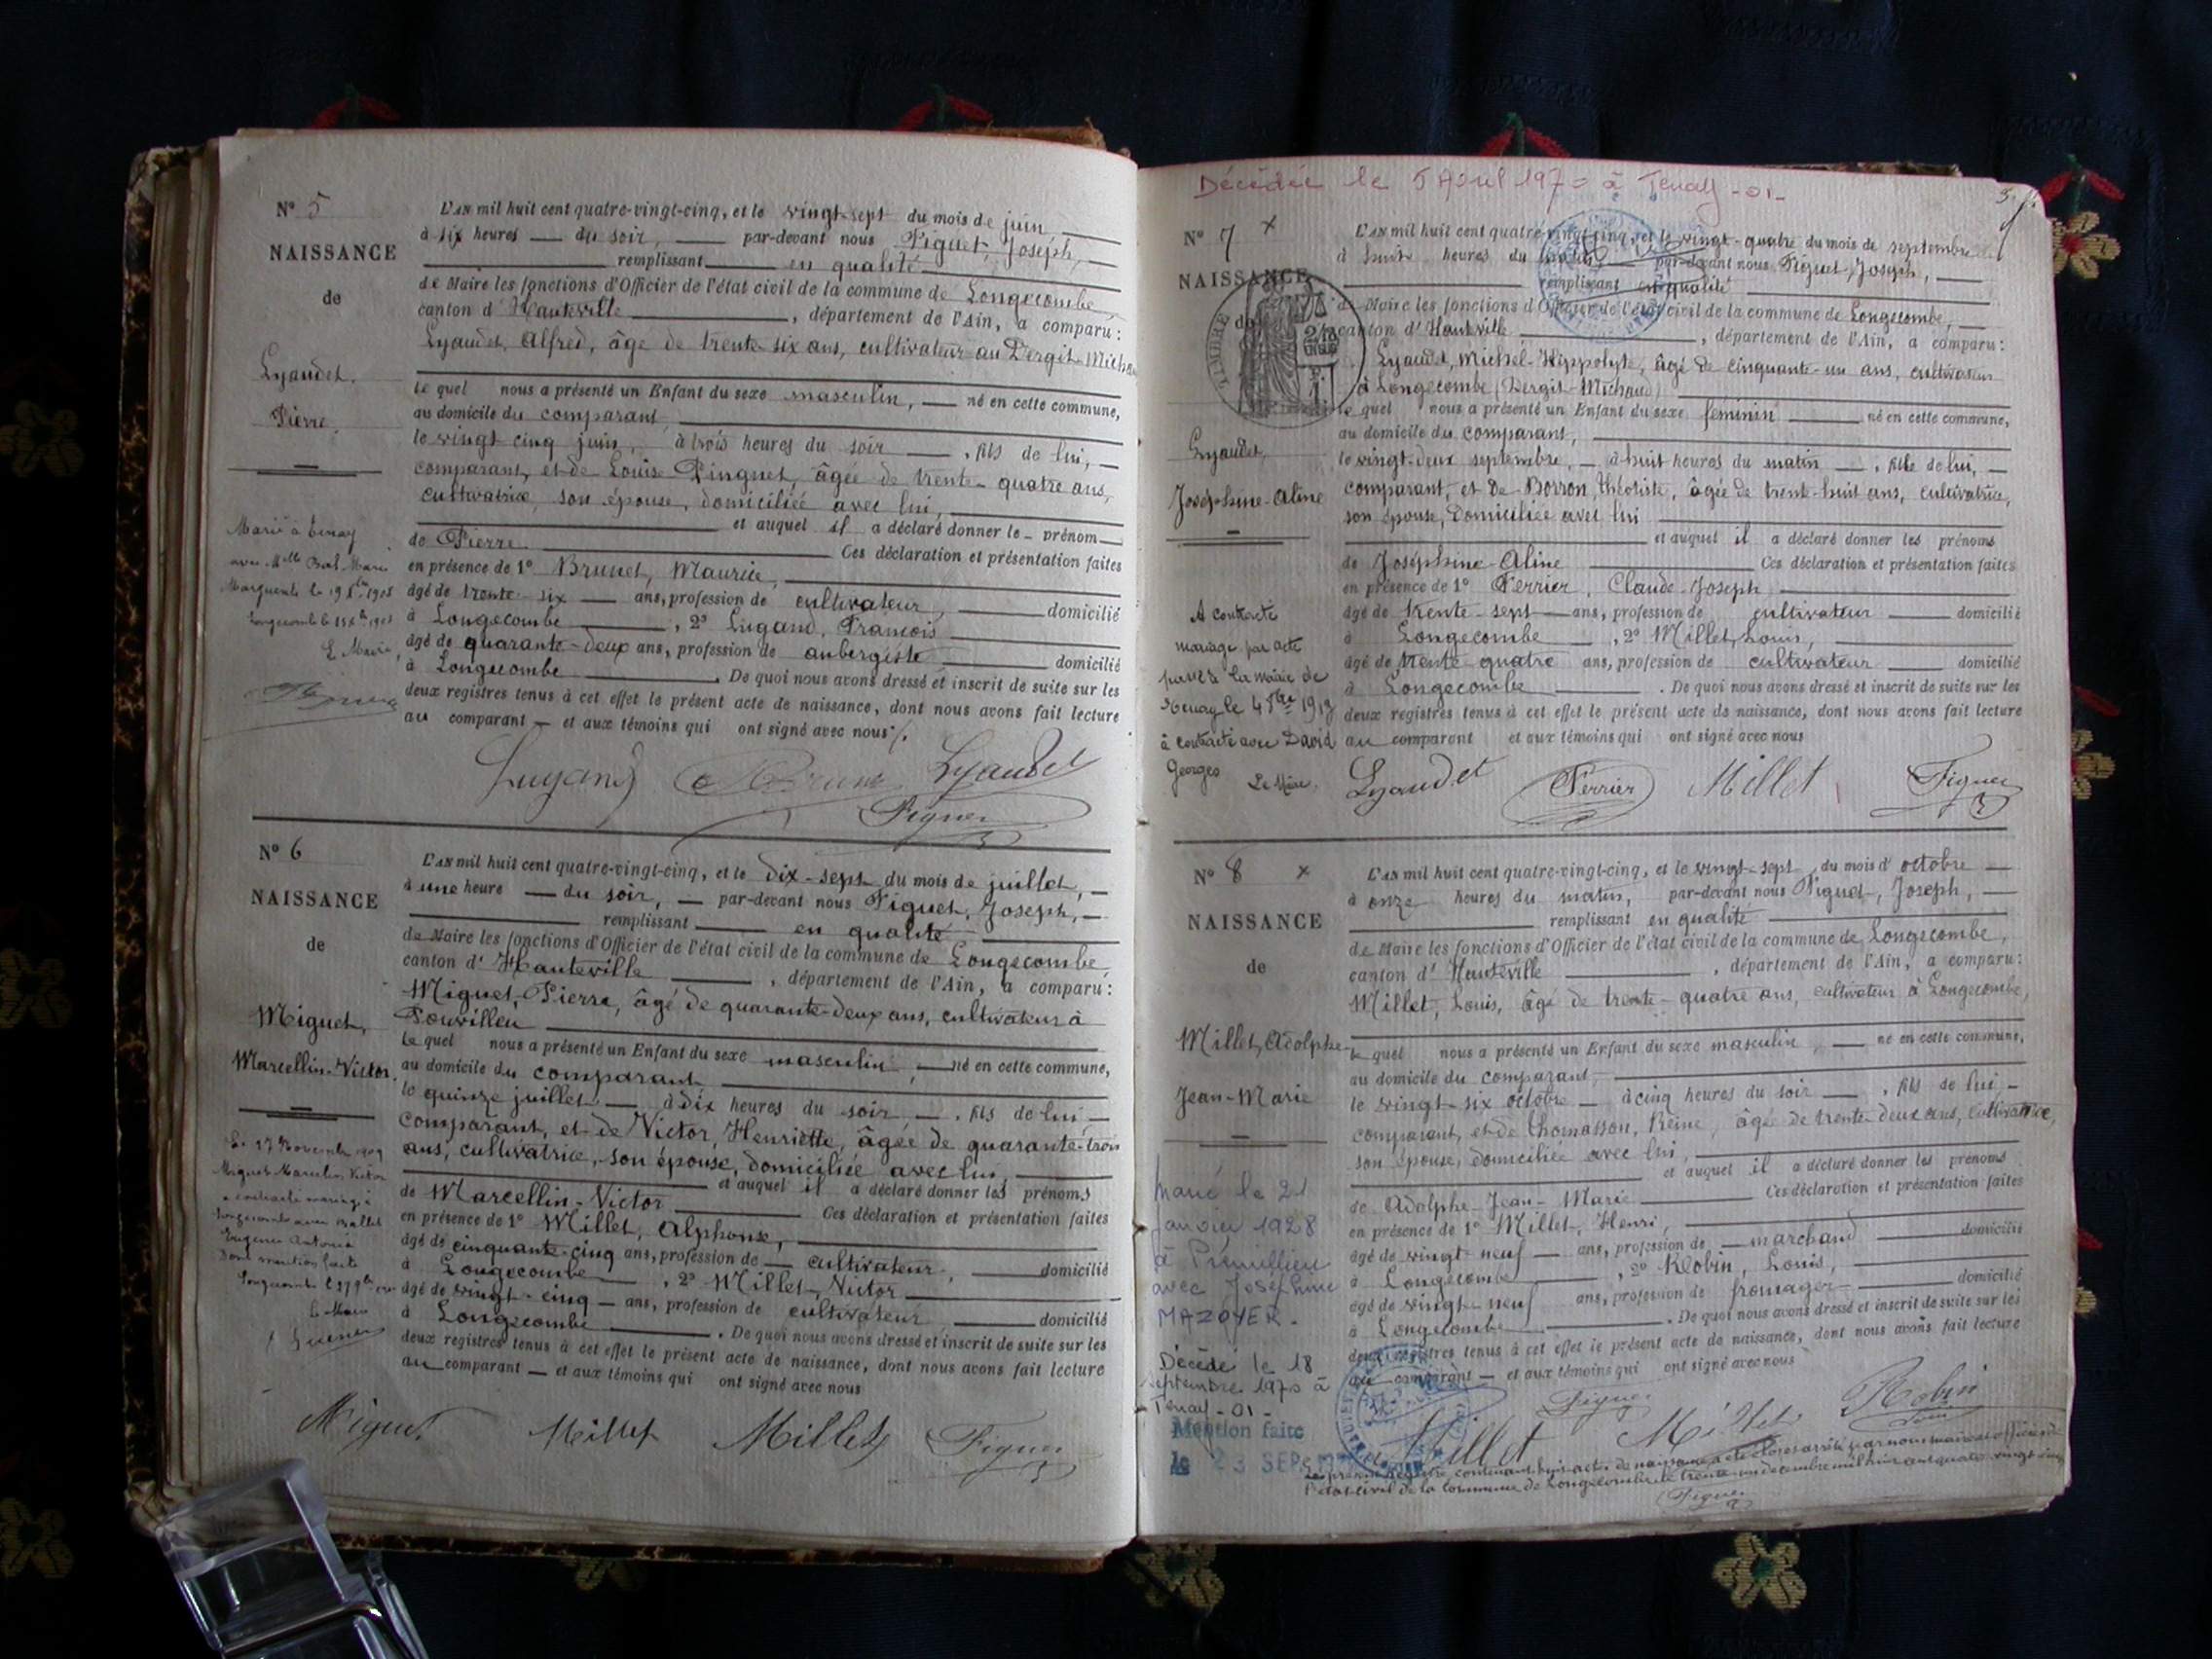 N° 5
NAISSANCE
de
Lyaudet,
Pierre.
Marié à Tenay
L'AN mil huit cent quatre-vingt-cinq, et le vingt-sept du mois de juin
à six heures du soir, par-devant nous Piguet, Joseph,
remplissant en qualité
de Maire les fonctions d'Officier de l'état civil de la commune de Longecombe,
canton d'Hauteville, département de l'Ain, a comparu:
Lyaudet, Alfred, âgé de trente-six ans, cultivateur au Dergit-Micha
le quel nous a présenté un Enfant du sexe masculin, né en cette commune,
au domicile du comparant
le vingt cinq juin, à trois heures du soir, fils de lui,
comparant, et de Louise Pinguet, âgée de trente-quatre ans,
cultivatrice, son épouse, domiciliée avec lui,
et auquel il a déclaré donner le prénom
de Pierre Ces déclaration et présentation faites
en présence de 1° Brunet, Maurice,
âgé de trente-six ans, profession de cultivateur, domicilié
à Longecombe, 2° Lugand, François
âgé de quarante-deux ans, profession de aubergiste domicilié
à Longecombe. De quoi nous avons dressé et inscrit de suite sur les
deux registres tenus à cet effet le présent acte de naissance, dont nous avons fait lecture
au comparant et aux témoins qui ont signé avec nous
Lugand Brunet Lyaudet
Piguet
N° 6
NAISSANCE
de
Miguet,
Marcellin-Victor.
Le 27 Novembre 1909
Miguet Marcelin Victor
a contracté mariage à
Longecombe avec Mallet
Eugénie Antonia
Dont mention faite
Le Maire
L'AN mil huit cent quatre-vingt-cinq, et le dix-sept du mois de juillet,
à une heure du soir, par-devant nous Piguet, Joseph,
remplissant en qualité
de Maire les fonctions d'Officier de l'état civil de la commune de Longecombe,
canton d'Hauteville, département de l'Ain, a comparu:
Miguet, Pierre, âgé de quarante-deux ans, cultivateur à
Pouvilleu
le quel nous a présenté un Enfant du sexe masculin, né en cette commune,
au domicile du comparant
le quinze juillet, à dix heures du soir, fils de lui,
comparant, et de Victor, Henriette, âgée de quarante-trois
ans, cultivatrice, son épouse, domiciliée avec lui
et auquel il a déclaré donner les prénoms
de Marcellin-Victor Ces déclaration et présentation faites
en présence de 1° Millet, Alphonse,
âgé de cinquante-cinq ans, profession de cultivateur, domicilié
à Longecombe, 2° Millet, Victor
âgé de vingt-cinq ans, profession de cultivateur domicilié
à Longecombe. De quoi nous avons dressé et inscrit de suite sur les
deux registres tenus à cet effet le présent acte de naissance, dont nous avons fait lecture
au comparant et aux témoins qui ont signé avec nous
Miguet Millet Millet Piguet
Décédée le 5 Avril 1970 à Tenay -01-
N° 7 x
NAISSANCE
de
TIMBRE
Lyaudet,
Joséphine-Aline
A contracté
mariage par acte
passé à la mairie de
à contracté avec David
Georges Le Maire.
L'AN mil huit cent quatre-vingt-cinq, et le vingt-quatre du mois de septembre
à huit heures du matin, par-devant nous Piguet, Joseph,
remplissant en qualité
de Maire les fonctions d'Officier de l'état civil de la commune de Longecombe,
canton d'Hauteville, département de l'Ain, a comparu:
Lyaudet, Michel-Hippolyte, âgé de cinquante-un ans, cultivateur
à Longecombe (Dergit-Michaud)
le quel nous a présenté un Enfant du sexe féminin né en cette commune,
au domicile du comparant,
le vingt-deux septembre, à huit heures du matin, fille de lui,
comparant, et de Borron, Théotiste, âgée de trente-huit ans, cultivatrice,
son épouse, domiciliée avec lui
et auquel il a déclaré donner les prénoms
de Joséphine-Aline Ces déclaration et présentation faites
en présence de 1° Perrier, Claude Joseph
âgé de trente-sept ans, profession de cultivateur domicilié
à Longecombe, 2° Millet, Louis,
âgé de trente-quatre ans, profession de cultivateur domicilié
à Longecombe. De quoi nous avons dressé et inscrit de suite sur les
deux registres tenus à cet effet le présent acte de naissance, dont nous avons fait lecture
au comparant et aux témoins qui ont signé avec nous
Lyaudet Perrier Millet Piguet
N° 8 x
NAISSANCE
de
Millet, Adolphe
Jean-Marie
Marié le 21
janvier 1928
à Prémillieu
avec Joséphine
MAZOYER.
Décédé le 18
septembre 1970 à
Tenay -01-
Mention faite
le 23 SEP
L'AN mil huit cent quatre-vingt-cinq, et le vingt-sept du mois d'octobre
à onze heures du matin, par-devant nous Piguet, Joseph,
remplissant en qualité
de Maire les fonctions d'Officier de l'état civil de la commune de Longecombe,
canton d'Hauteville, département de l'Ain, a comparu:
Millet, Louis, âgé de trente-quatre ans, cultivateur à Longecombe,
le quel nous a présenté un Enfant du sexe masculin, né en cette commune,
au domicile du comparant,
le vingt-six octobre à cinq heures du soir, fils de lui
comparant, et de Thomasson, Reine, âgée de trente-deux ans, cultivatrice,
son épouse, domiciliée avec lui,
et auquel il a déclaré donner les prénoms
de Adolphe-Jean-Marie Ces déclaration et présentation faites
en présence de 1° Millet, Henri,
âgé de vingt-neuf ans, profession de marchand domicilié
à Longecombe, 2° Robin, Louis,
âgé de vingt-neuf ans, profession de fromager domicilié
à Longecombe. De quoi nous avons dressé et inscrit de suite sur les
deux registres tenus à cet effet le présent acte de naissance, dont nous avons fait lecture
au comparant et aux témoins qui ont signé avec nous
Piguet Robin
Millet Millet
Le présent registre, contenant huit actes de naissance a été clos et arrêté par nous maire et officier de
l'état civil de la commune de Longecombe le trente-un décembre mil huit cent quatre-vingt-cinq
Piguet